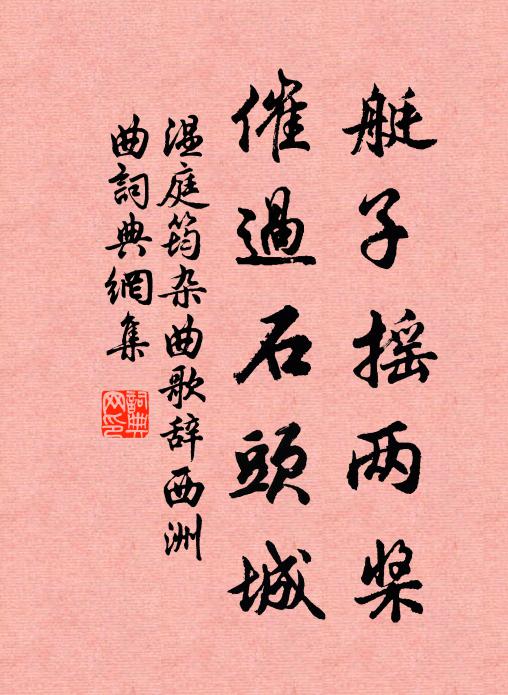 艇子摇两桨
催過石頭城
温庭筠杂曲歌辞西洲
曲詞典網集
詞典网印